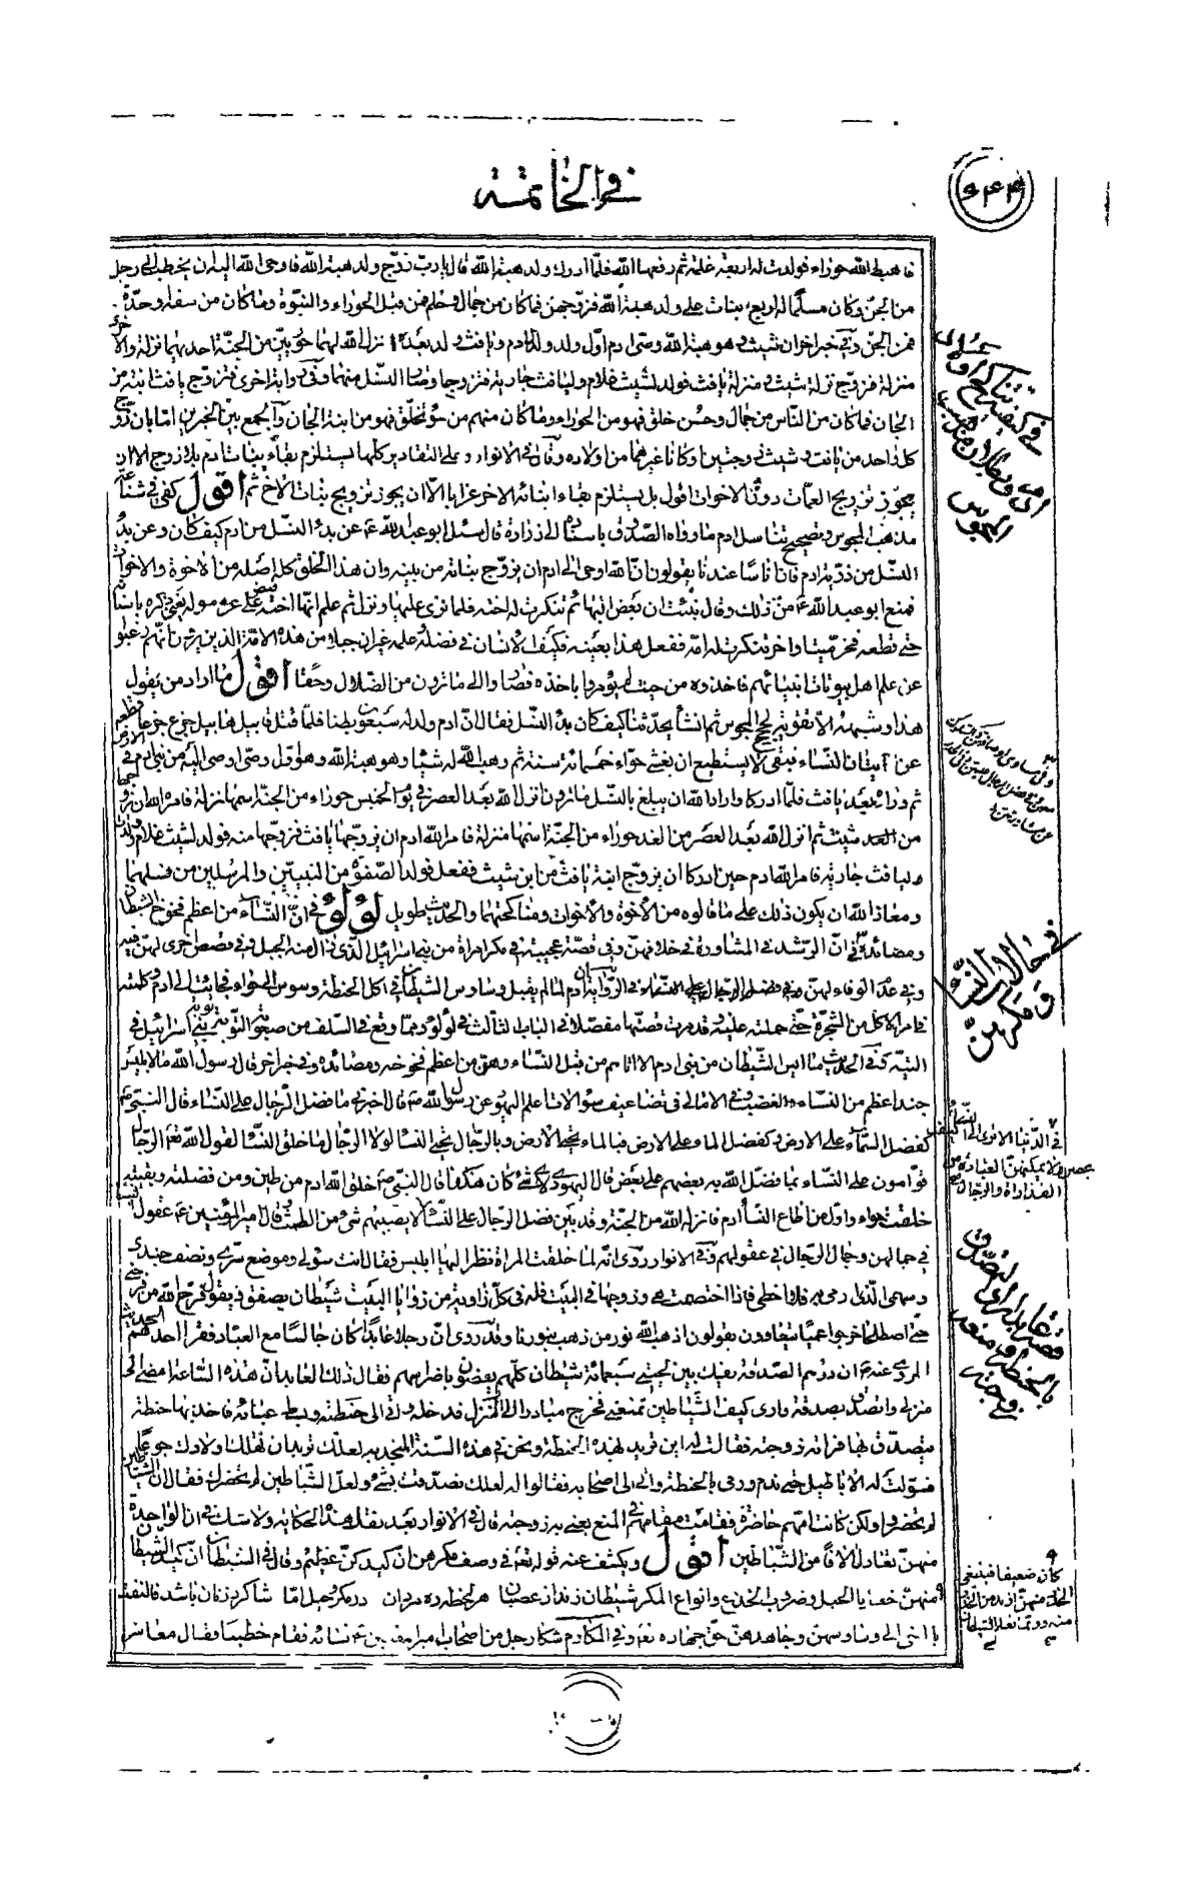 في الخاتمة
۶۴۴
فاهبط الله حوراء فولدت له اربعة غلمة ثم رفعها الله فلما ادرك ولد هبة الله قال يا رب زوج ولد هبة الله فاوحى الله اليه ان يخطب الى رجل
من الجن وكان مسلما له اربع بنات على ولد هبة الله فزوجهن فما كان من جمال وحلم فمن قبل الحوراء والنبوة وما كان من سفه وحدة
فمن الجن وفي خبر اخر ان شيث وهو هبة الله وصى ادم اول ولد ولد لادم ويافث ولد بعده انزل الله لهما حوريتين من الجنة احديهما نزلة والاخرى
منزلة فزوج نزلة شيث ومنزلة يافث فولد لشيث غلام وليافث جارية فتزوجا وصار النسل منهما وفي رواية اخرى فتزوج يافث ابنة من
الجان فما كان من الناس من جمال وحسن خلق فهو من الحوراء وما كان منهم من سوء خلق فهو من ابنة الجان والجمع بين الخبرين اما بان زوج
كل واحد من يافث وشيث زوجتين او كانا غيرهما من اولاده وقال في الانوار وعلى التقادير كلها يستلزم بقاء بنات ادم بلا زوج الا ان
يجوز تزويج العمات دون الاخوات اقول بل يستلزم بقاء ابنائه الاخر عزابا الا ان يجوز تزويج بنات الاخ ثم اقول كفى في شناعة
مذهب المجوس وتصحيح تناسل ادم ما رواه الصدوق باسناده الى زرارة قال سئل ابو عبد الله ع عن بدء النسل من ادم كيف كان وعن بدء
النسل من ذرية ادم فان اناسا عندنا يقولون ان الله اوحى الى ادم ان يزوج بناته من بنيه وان هذا الخلق كله اصله من الاخوة والاخوات
فمنع ابو عبد الله ع من ذلك وقال نبئت ان بعض البهائم تنكرت له اخته فلما نزى عليها ونزل ثم علم انها اخته قبض على غرموله
حتى قطعه فخر ميتا واخر تنكرت له امه ففعل هذا بعينه فكيف الانسان في فضله وعلمه غير ان جيلا من هذه الامة الذين يرون انهم رغبوا
عن علم اهل بيوتات انبيائهم فاخذوه من حيث لم يؤمروا باخذه فصاروا الى ما ترون من الضلال وحقا اقول ما اراد من يقول
هذا وشبهه الا تقوية لحجج المجوس ثم انشا يحدثنا كيف كان بدء النسل فقال ان ادم ولد له سبعون بطنا فلما قتل قابيل هابيل جزع جزعا قطعه
عن اتيان النساء فبقى لا يستطيع ان يغشى حواء خمسمائة سنة ثم وهب الله له شيثا وهو هبة الله وهو اول وصى اوصى اليه من بني ادم في الارض
ثم ولد له بعده يافث فلما ادركا واراد الله ان يبلغ بالنسل ما ترون انزل الله بعد العصر في يوم الخميس حوراء من الجنة اسمها نزلة فامره الله ان يزوجها
من شيث ثم انزل الله بعد العصر من الغد حوراء من الجنة اسمها منزلة فامر الله ادم ان يزوجها يافث فزوجها منه فولد لشيث غلام وولدت
ليافث جارية فامر الله ادم حين ادركا ان يزوج ابنة يافث من ابن شيث ففعل فولد الصفوة من النبيين والمرسلين من نسلهما
ومعاذ الله ان يكون ذلك على ما قالوه من الاخوة والاخوات ومناكحتهما والحديث طويل لؤلؤ في ان النساء من اعظم فخوخ الشيطان
ومصائده وفي ان الرشد في المشاورة في خلافهن وفي قصة عجيبة في مكر امراة من بني اسرائيل الذي الجبل وفي قصص اخرى لهن فيه
وفي عدم الوفاء لهن وفي فضل الرجال على النساء في الرواية ان ادم لما لم يقبل وساوس الشيطان في اكل الحنطة وسوس الى حواء فجائت الى ادم وكلمته
في امر الاكل من الشجرة حتى حملته عليه وقد مرت قصتها مفصلا في الباب الثالث في لؤلؤ ومما وقع في السلف من صعوبة التوبة توبة بني اسرائيل في
التيه كفى الحديث ما ايس الشيطان من بني ادم الا اتاهم من قبل النساء وهن من اعظم فخوخه ومصائده وفي خبر اخر قال رسول الله ما لابليس
جند اعظم من النساء والغضب وفي الامالي في تضاعيف سؤالات اعلم اليهود عن رسول الله ص قال اخبرني ما فضل الرجال على النساء قال النبي ص
كفضل السماء على الارض وكفضل الماء على الارض فبالماء يحيى الارض وبالرجال تحيى النساء لولا الرجال ما خلق النساء لقول الله تعالى الرجال
قوامون على النساء بما فضل الله به بعضهم على بعض قال اليهودي لاي شيء كان هكذا قال النبي ص خلق الله ادم من طين ومن فضلته وبقيته
خلقت حواء واول من اطاع النساء ادم فانزله الله من الجنة وقد بين فضل الرجال على النساء لا يصيبهم شيء من الطمث وقال امير المؤمنين ع عقول النساء
في جمالهن وجمال الرجال في عقولهم وفي الانوار روى انه لما خلقت المراة نظر اليها ابليس فقال انت سؤلي وموضع سري ونصف جندي
وسهمي الذي ارمي به فلا اخطى فاذا اختصمت هي وزوجها في البيت فله في كل زاوية من زوايا البيت شيطان يصفق ويقول فرح الله من فرحني
حتى اصطلحا خرجوا عميا يتعاوون يقولون اذهب الله نور من ذهب بنورنا وقد روى ان رجلا عابدا كان جالسا مع العباد فقرا احدهم الحديث
المروي عنه ع ان درهم الصدقة يفك بين لحيتي سبعمائة شيطان كلهم يعضون باضراسهم فقال ذلك العابد ان هذه الساعة امضي الى
منزلي واتصدق بصدقة وارى كيف الشياطين تمنعني فخرج مبادرا الى المنزل فدخله واتى الى حنطته وبسط عبائه فاخذ بها حنطة
يتصدق بها فراته زوجته فقالت له اين تريد بهذه الحنطة ونحن في هذه السنة المجدبة لعلك تريد ان تهلك اولادك جوعا
فسولت له الاباطيل حتى ندم ورمى بالحنطة واتى الى اصحابه فقالوا له لعلك تصدقت بشيء ولعل الشياطين لم يحضرك فقال ان الشياطين
لم يحضروا ولكن كانت امهم حاضرة فقامت مقامهم في المنع يعني به زوجته قال في الانوار بعد نقل هذه الحكاية ولا شك في ان الواحدة
منهن تعادل الافا من الشياطين اقول ويكشف عنه قوله تعالى في وصف مكرهن ان كيدكن عظيم وقال في الشيطان ان كيد الشيطان
منهن خفايا الحيل وضروب الخدع وانواع المكر
وفي المكارم شكا رجل من اصحاب امير المؤمنين ع نسائه فقام خطيبا فقال معاشر
في كيفية تناكح اولاد
ادم وبطلان مذهب
المجوس
في حال النساء
ومكرهن
في الدنيا الا ترى الى النساء كيف
يحضن ولا يمكنهن العبادة من
القذارة والرجال
قصة عابد اراد التصدق
بالحنطة ومنعه
زوجته
كان ضعيفا فينبغي